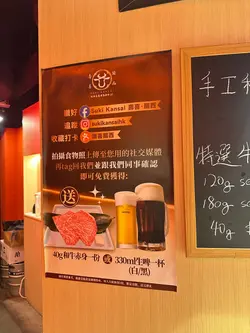 讚好 Suki Kansai 壽喜·關西
追蹤 sukikansaihk
收藏打卡 壽喜關西
拍攝食物照上傳至您用的社交媒體
再tag回我們並跟我們同事確認
即可免費獲得:
送
40g和牛赤身一份 或 330ml生啤一杯
(白/黑)
手工
特選 牛
120g
180g
40g